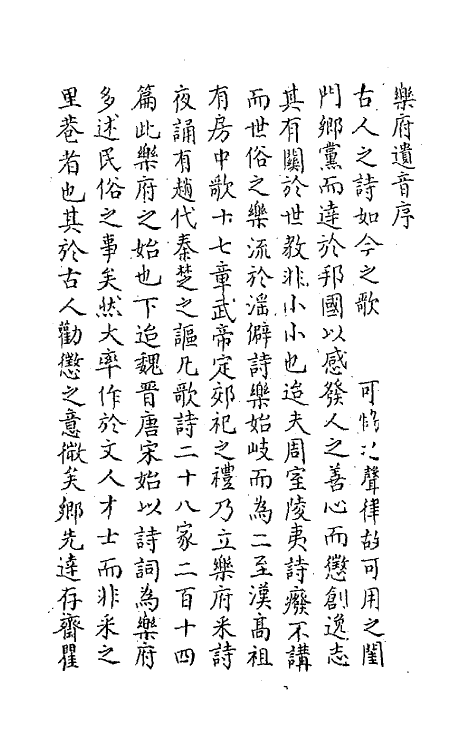 樂府遺音序
古人之詩如今之歌 可 之聲律故可用之閨
門鄉黨而達於邦國以感發人之善心而懲創逸志
其有關於世教非小小也迨夫周室陵夷詩廢不講
而世俗之樂流於淫僻詩樂始岐而為二至漢高祖
有房中歌十七章武帝定郊祀之禮乃立樂府采詩
夜誦有趙代秦楚之謳凡歌詩二十八家二百十四
篇此樂府之始也下迨魏晉唐宋始以詩詞為樂府
多述民俗之事矣然大率作於文人才士而非采之
里巷者也其於古人勸懲之意微矣鄉先達存齋瞿